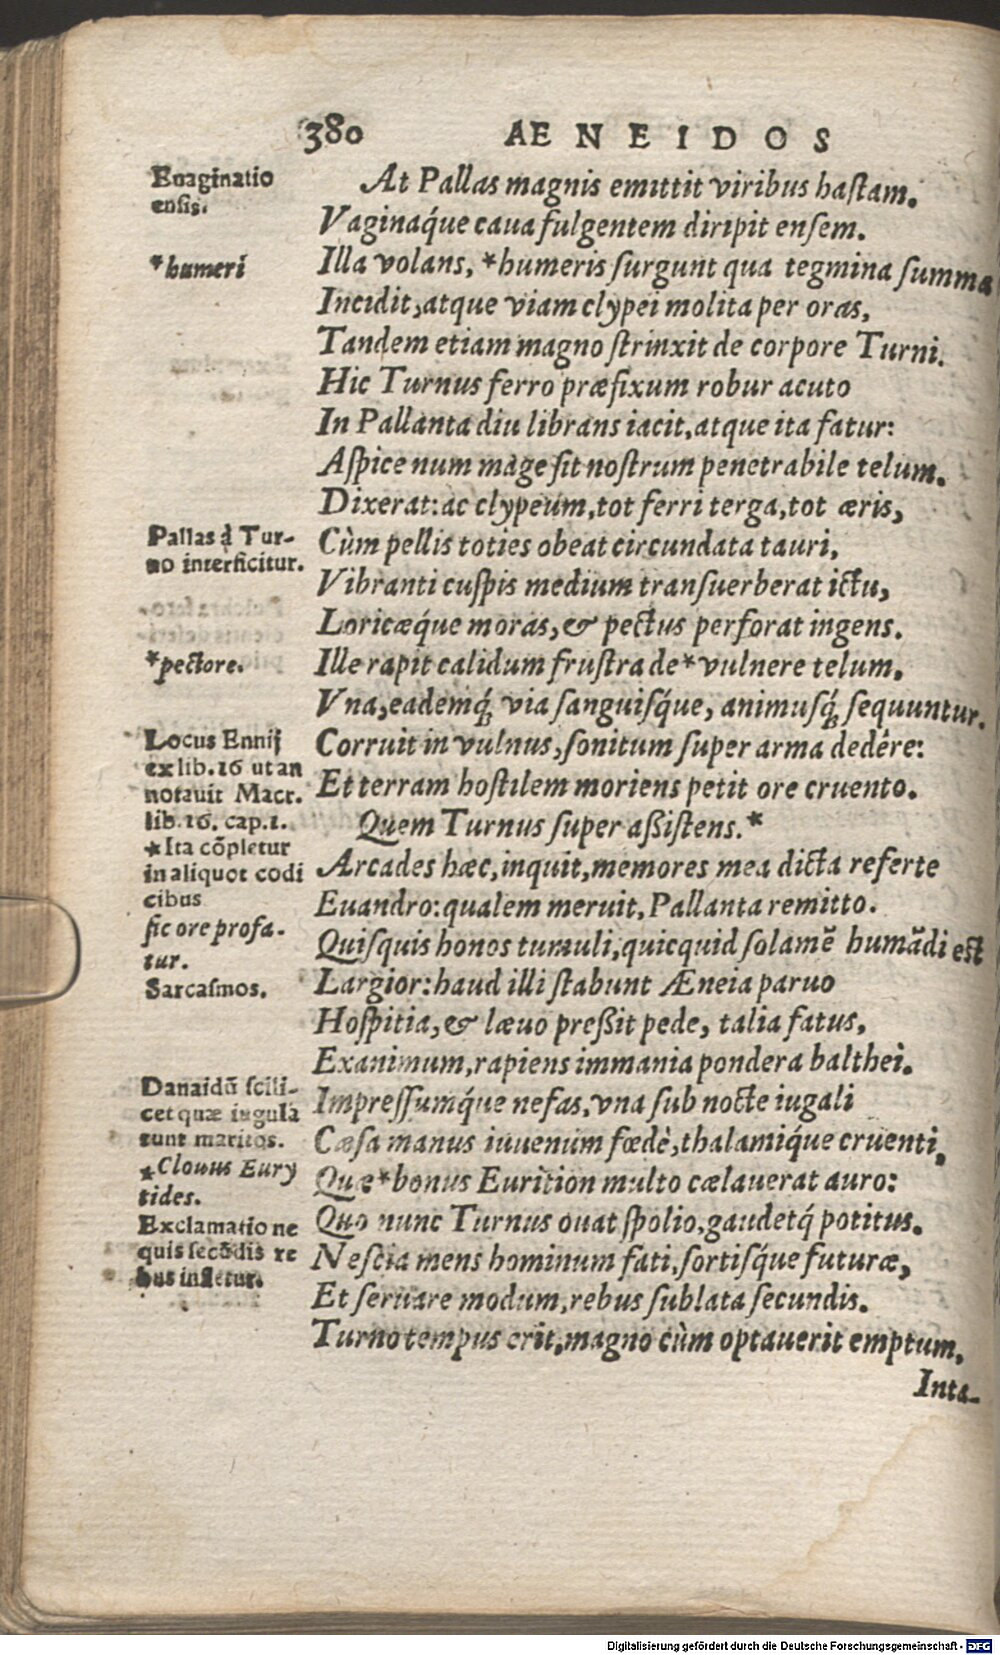 380 AENEIDOS
Euaginatio
ensis.
*humeri
Pallas à Tur-
no interficitur.
*pectore.
Locus Ennij
ex lib. 16 ut an
notauit Macr.
lib. 16. cap. 1.
*Ita cõpletur
in aliquot codi
cibus
sic ore profa-
tur.
Sarcasmos.
Danaidũ scili-
cet quæ iugula
runt maritos.
*Clonus Eury
tides.
Exclamatio ne
quis secũdis re
bus infletur.
At Pallas magnis emittit viribus hastam.
Vaginaq́ue caua fulgentem diripit ensem.
Illa volans, *humeris surgunt qua tegmina summa
Incidit, atque viam clypei molita per oras,
Tandem etiam magno strinxit de corpore Turni.
Hic Turnus ferro præfixum robur acuto
In Pallanta diu librans iacit, atque ita fatur:
Aspice num mage sit nostrum penetrabile telum.
Dixerat: ac clypeum, tot ferri terga, tot æris,
Cùm pellis toties obeat circundata tauri,
Vibranti cuspis medium transuerberat ictu,
Loricæq́ue moras, & pectus perforat ingens.
Ille rapit calidum frustra de *vulnere telum,
Vna, eademq́; via sanguisq́ue, animusq́; sequuntur.
Corruit in vulnus, sonitum super arma dedêre:
Et terram hostilem moriens petit ore cruento.
Quem Turnus super aßistens.*
Arcades hæc, inquit, memores mea dicta referte
Euandro: qualem meruit, Pallanta remitto.
Quisquis honos tumuli, quicquid solamẽ humãdi est
Largior: haud illi stabunt Æneia paruo
Hospitia, & læuo preßit pede, talia fatus,
Exanimum, rapiens immania pondera balthei.
Impressumq́ue nefas, vna sub nocte iugali
Cæsa manus iuuenum fœdè, thalamiq́ue cruenti,
Quæ *bonus Eurition multo cælauerat auro:
Quo nunc Turnus ouat spolio, gaudetq́; potitus.
Nescia mens hominum fati, sortisq́ue futuræ,
Et seruare modum, rebus sublata secundis.
Turno tempus erit, magno cùm optauerit emptum,
Inta-
Digitalisierung gefördert durch die Deutsche Forschungsgemeinschaft - DFG